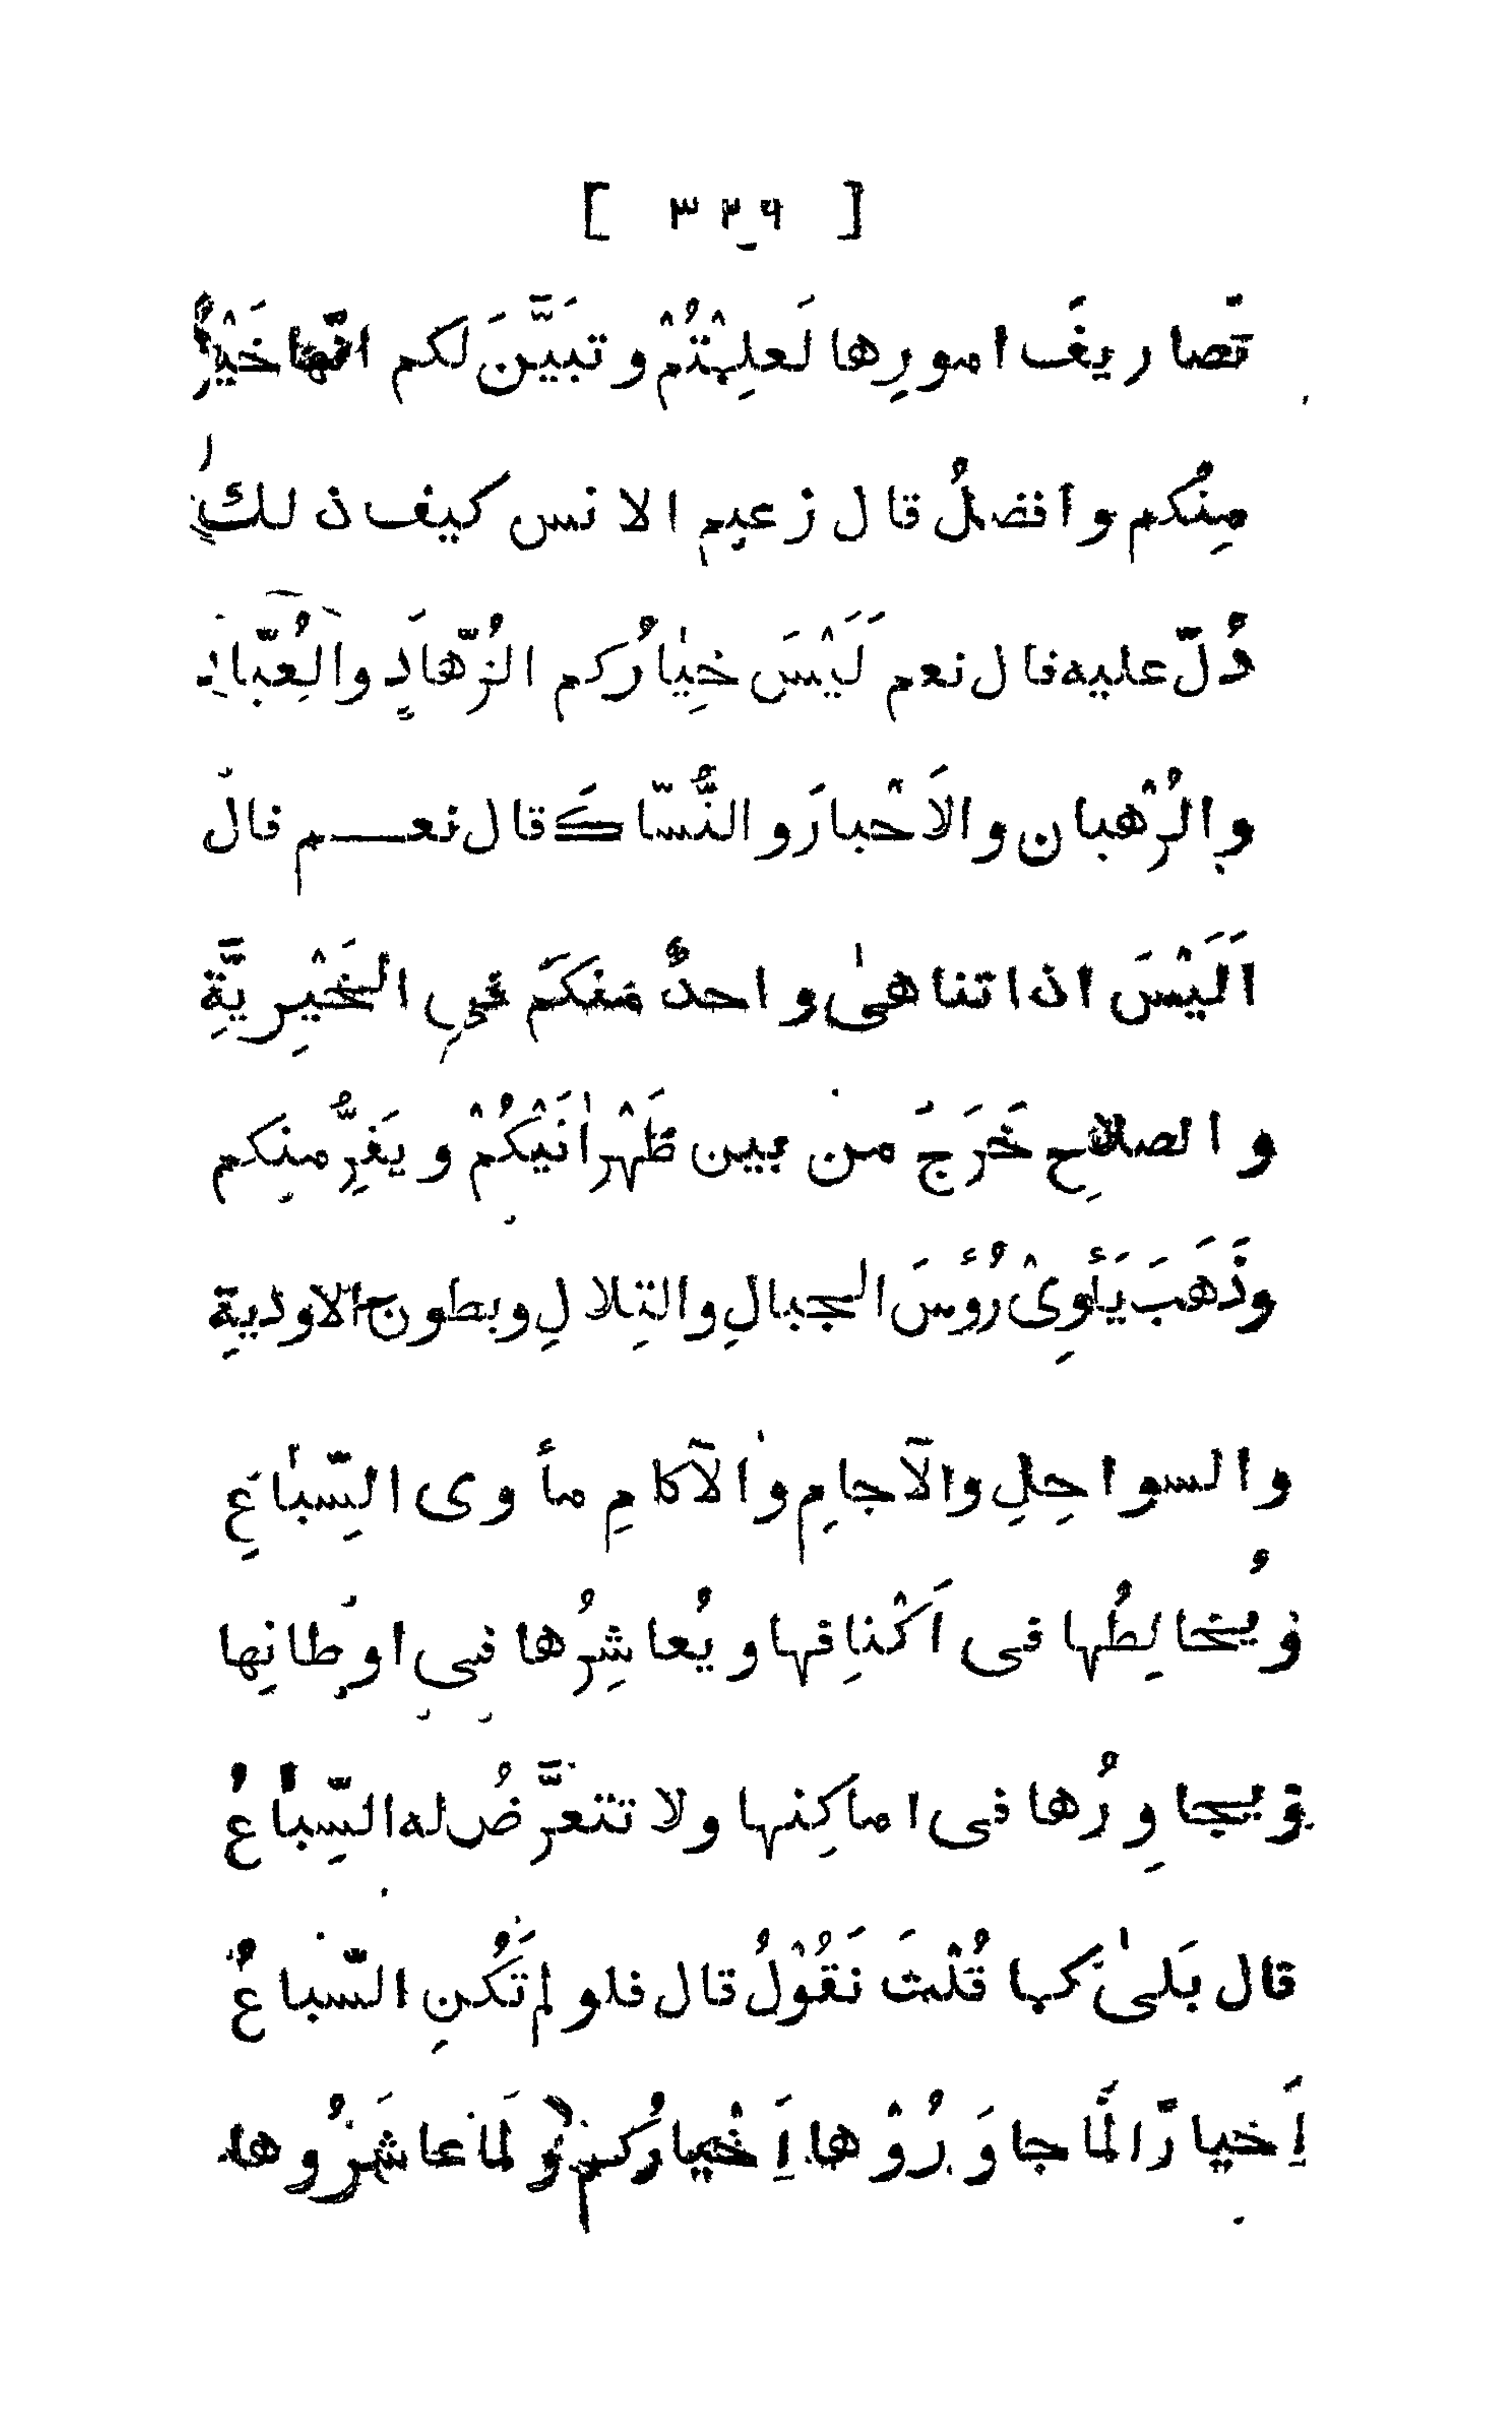 [ ٣٢٩ ]
تَصاريفَ امورِها لَعلِمْتُمْ و تبَيَّنَ لكم انّها خَيْرٌ
مِنُكم و اَفضلُ قال زعيم الانس كيف ذلك
دُلّ عليه قال نعم لَيْسَ خِيٰارُكم الزُّهّاد والعُبّاد
والرُهْبان والاَحْبارَ و النُّسّاكَ قال نعــم قال
اَلَيْسَ اذا تناهىٰ واحدٌ منكم في الخَيْرِيَّةِ
و الصلاحِ خَرَجَ من بين ظَهْرٰانَيْكُمْ و يَفِرُّ منكم
وذَهَبَ يَأوِىْ رُؤسَ الجبالِ والتِلالِ وبطون الاوديةِ
والسواحِلِ والآجامِ والآكامِ مأوى السِّبٰاعِ
ويُخالِطُها فى اَكْنافِها و يُعاشِرُها في اوطانِها
ويجاوِرُها فى اماكِنها ولا تتعرَّضُ له السِّبٰاعُ
قال بَلىٰ كما قُلْتَ نَقُوْلُ قال فلو لم تَكُنِ السّباعُ
اَخيارًا لَمَا جاوَرُوْها اَخْيارُكم ولَما عاشَرُوها